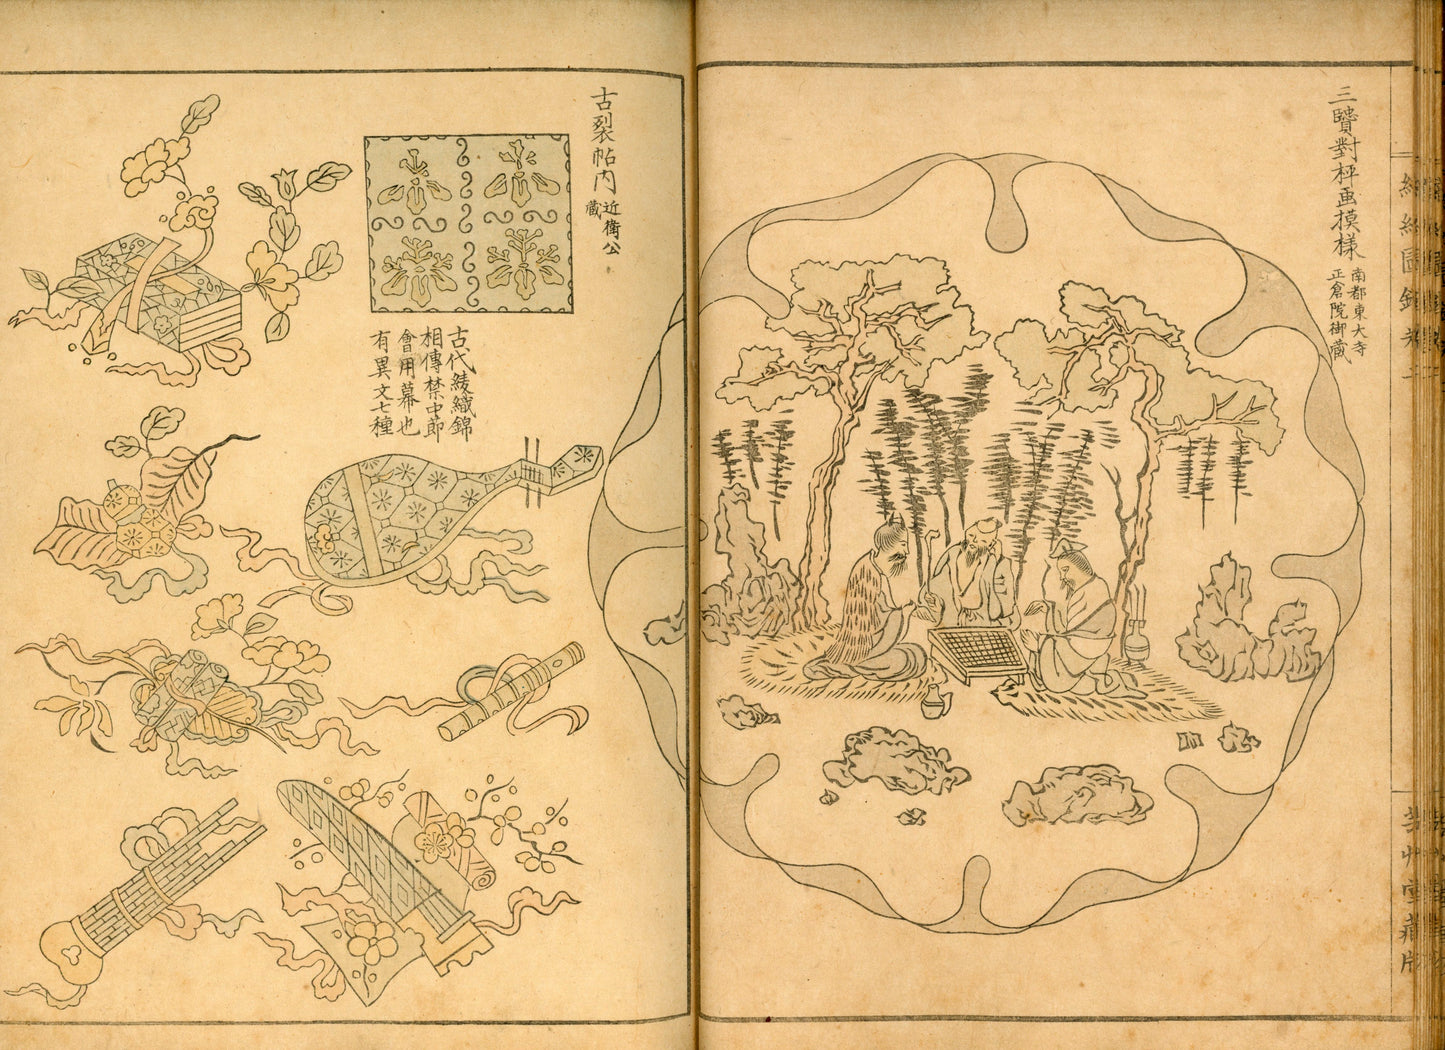 三賢對枰画摸樣
南都東大寺
正倉院御蔵
芸艸堂藏版
古裂帖内
近衛公
蔵
古代綾織錦
相傳禁中節
會用幕也
有異文七種